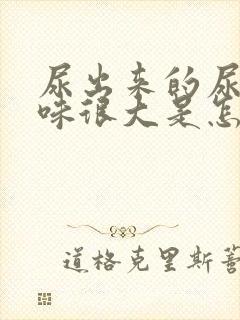 尿出来的尿
味很大是怎
道格克里斯蒂